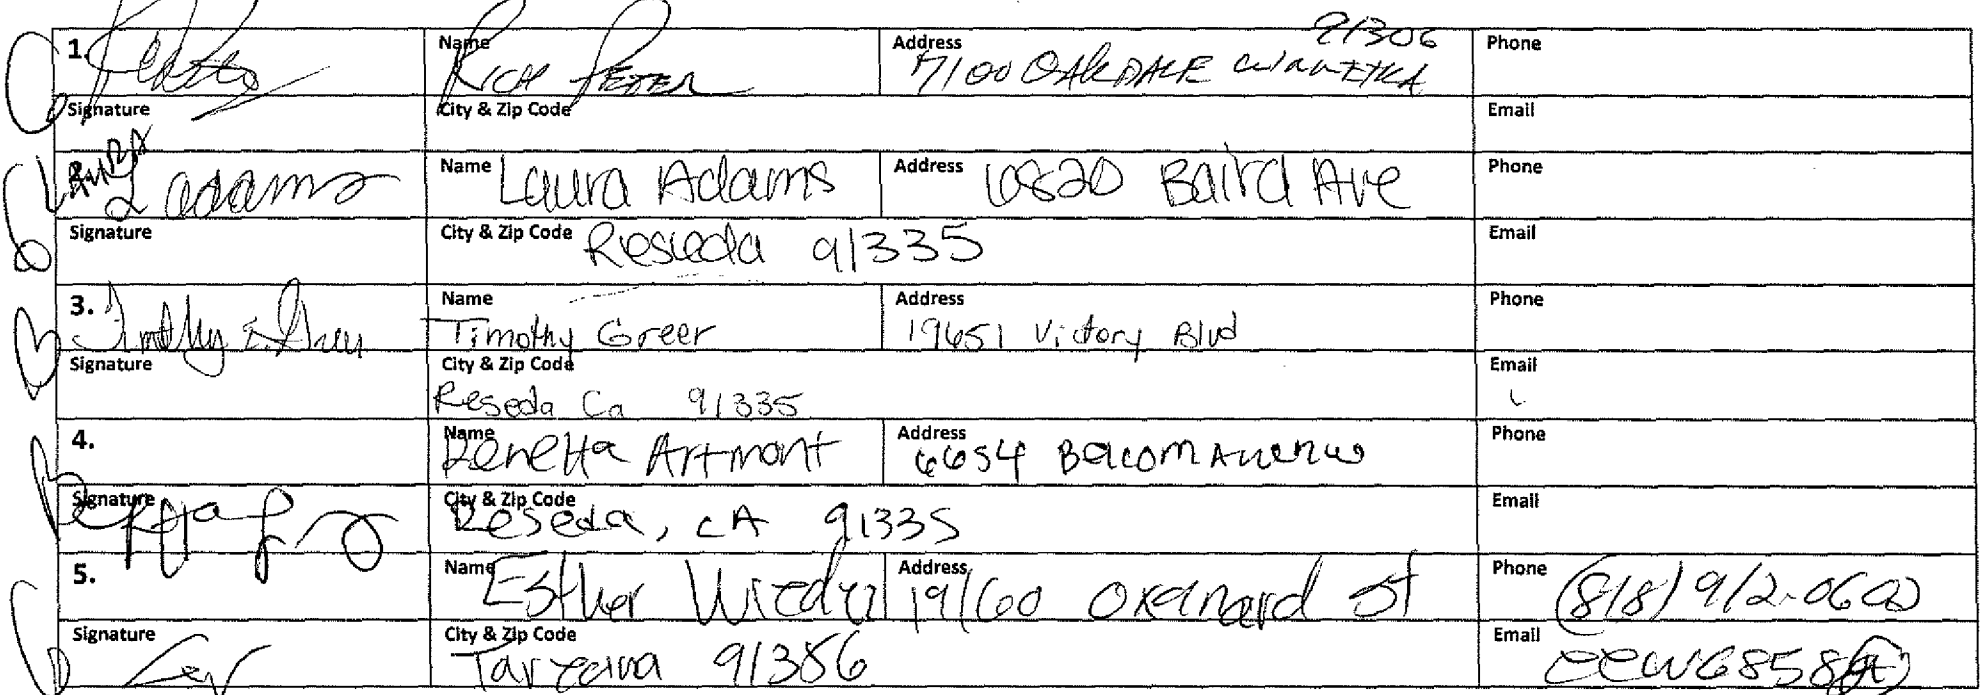 91306
1. Name Rich Peter Address 7100 OAKDALE WINNETKA Phone
Signature City & Zip Code Email
LAURA
L adams Name Laura Adams Address 6820 Baird Ave Phone
Signature City & Zip Code Reseda 91335 Email
3. Timothy E. Greer Name Timothy Greer Address 19651 Victory Blvd Phone
Signature City & Zip Code Reseda Ca 91335 Email
4. Name Renetta Artmont Address 6654 Phone
Signature City & Zip Code Reseda, CA 91335 Email
5. Name Esther Address 19160 St Phone (818) 912-0600
Signature City & Zip Code Tarzana 91356 Email eew6858@